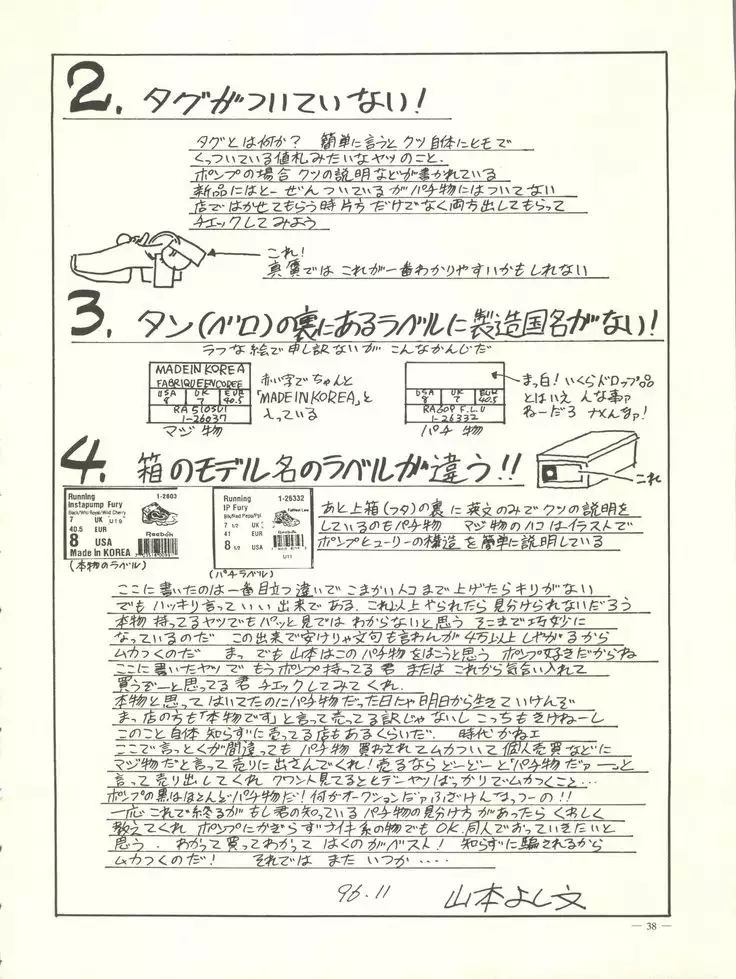 2. タグがついていない!
タグとは何か? 簡単に言うとクツ自体にヒモで
くっついている値札みたいなヤツのこと.
ポンプの場合クツの説明などが書かれている
新品にはとーぜんついているがパチ物にはついてない
店ではかせてもらう時片方だけでなく両方出してもらって
チェックしてみよう
これ!
真贋では これが一番わかりやすいかもしれない
3. タン(ベロ)の裏にあるラベルに製造国名がない!
ラフな絵で申し訳ないが こんなかんじだ
MADE IN KOREA
FABRIQUE EN COREE
USA UK EUR
8 7 40.5
RA 510SU1
1-26037
マジ物
赤い字でちゃんと
「MADE IN KOREA」と
入っている
USA UK EUR
8 7 40.5
RA60P F.L.U
1-26332
パチ物
まっ白! いくらドロップ品
とはいえ んな事ァ
ねーだろ ナメんなァ!
4. 箱のモデル名のラベルが違う!!
これ
Running 1-2603
Instapump Fury
Black/Wht/Royal/Wild Cherry
7 UK U19
40.5 EUR
8 USA
Reebok
Made in KOREA
(本物のラベル)
Running 1-26332
IP Fury
7 1/2 UK
41 EUR
8 1/2 USA
Reebok
U11
(パチラベル)
あと上箱(フタ)の裏に英文のみでクツの説明を
しているのもパチ物 マジ物のハコはイラストで
ポンプヒューリーの構造を簡単に説明している
ここに書いたのは一番目立つ違いでこまかいトコまで上げたらキリがない
でもハッキリ言っていい出来である. これ以上やられたら見分けられないだろう
本物持ってるヤツでもパッと見ではわからないと思う そこまで巧妙に
なっているのだ この出来で安けりゃ文句も言わんが4万以上しやがるから
ムカつくのだ まっ でも山本はこのパチ物をはこうと思う ポンプ好きだからね
ここに書いたヤツで もうポンプ持ってる君 または これから気合い入れて
買うぞーと思ってる君 チェックしてみてくれ.
本物と思ってはいてたのにパチ物だった日にゃ明日から生きていけんぞ
まっ店の方も「本物です」と言って売ってる訳じゃないし こっちもきけねーし
このこと自体知らずに売ってる店もあるくらいだ. 時代かねェ
ここで言っとくが間違っても パチ物 買わされてムカついて個人売買などに
マジ物だと言って売りに出さんでくれ! 売るならどーどーと「パチ物だァーっ」と
言って売り出してくれ クワント見てるとヒデーヤツばっかりでムカつくこと…
ポンプの黒はほとんどパチ物だ! 何がオークションだァふざけんなっつーの!!
一応これで終るが もし君の知っているパチ物の見分け方があったらくわしく
教えてくれ ポンプにかぎらずナイキ系の物でもOK. 同人でおっていきたいと
思う. わかって買ってわかって はくのがベスト! 知らずに騙されるから
ムカつくのだ! それでは また いつか ‥‥
96.11 山本よし文
— 38 —